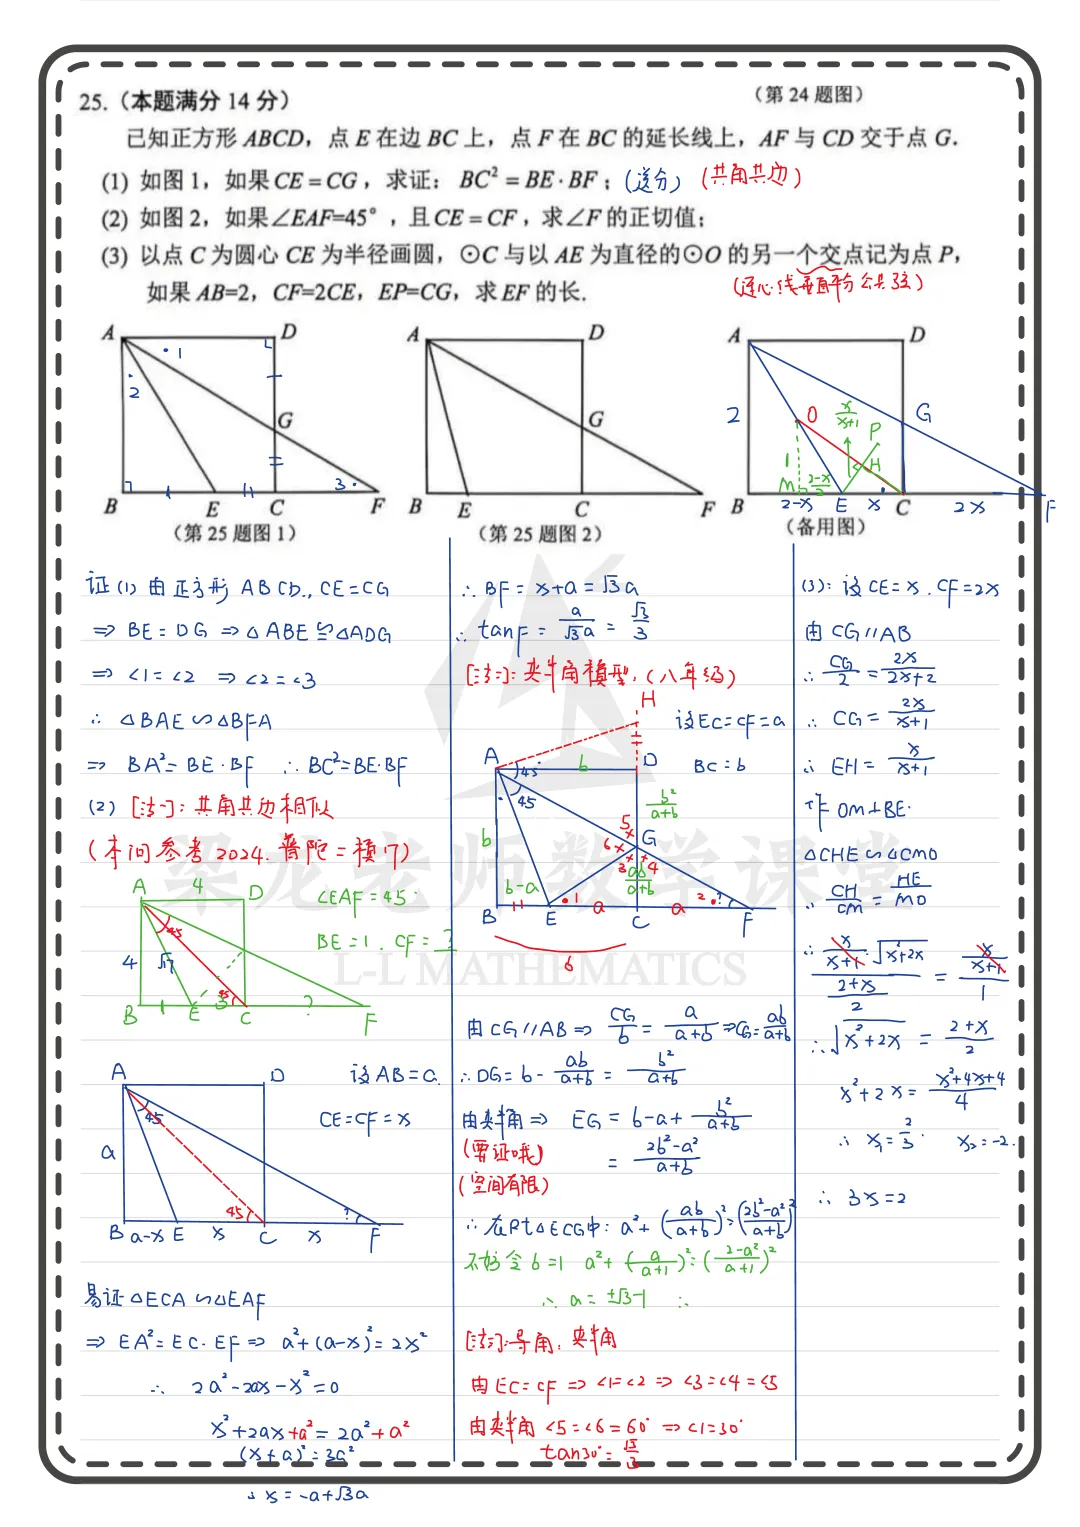 (第 24 题图)
25.（本题满分 14 分）
已知正方形 ABCD，点 E 在边 BC 上，点 F 在 BC 的延长线上，AF 与 CD 交于点 G.
(1) 如图 1，如果 CE = CG，求证：BC² = BE · BF； (送分) (共角共边)
(2) 如图 2，如果∠EAF=45°，且 CE = CF，求∠F 的正切值；
(3) 以点 C 为圆心 CE 为半径画圆，⊙C 与以 AE 为直径的⊙O 的另一个交点记为点 P，
如果 AB=2，CF=2CE，EP=CG，求 EF 的长.
(连心线垂直平分公共弦)
A D G B E C F 1 2 3
(第 25 题图 1)
A D G B E C F
(第 25 题图 2)
A D G B E C F O P H M 2 1 x/(x+1) (2-x)/2 2-x x 2x
(备用图)
证 (1) 由正方形 ABCD., CE=CG
⇒ BE=DG ⇒ △ABE≌△ADG
⇒ ∠1=∠2 ⇒ ∠2=∠3
∴ △BAE∽△BFA
⇒ BA²=BE·BF ∴ BC²=BE·BF
(2) [法一]: 共角共边相似
(本问参考 2024. 普陀二模 17)
A 4 D 45 4 √17 45 B 1 E 3 C ? F
∠EAF=45
BE=1. CF=?
A D 45 a 45 ? B a-x E x C x F
设 AB=a.
CE=CF=x
易证△ECA∽△EAF
⇒ EA²=EC·EF ⇒ a²+(a-x)²=2x²
∴ 2a²-2ax-x²=0
x²+2ax+a²=2a²+a²
(x+a)²=3a²
∴ x=-a+√3a
∴ BF=x+a=√3a
∴ tanF=a/(√3a)=√3/3
[法二]: 夹半角模型. (八年级)
H
设EC=CF=a
BC=b
A 45 b D 45 b²/(a+b) b 5 G 6 3 4 ab/(a+b) b-a B E 1 a C a 2 ? F
b
由CG//AB ⇒ CG/b=a/(a+b) ⇒ CG=ab/(a+b)
∴ DG=b-ab/(a+b)=b²/(a+b)
由夹半角 ⇒ EG=b-a+b²/(a+b)
(要证哦) =(2b²-a²)/(a+b)
(空间有限)
∴ 在Rt△ECG中: a²+(ab/(a+b))²=((2b²-a²)/(a+b))²
不妨令 b=1 a²+(a/(a+1))²=((2-a²)/(a+1))²
∴ a=±√3-1 ∴
[法三]: 导角. 夹半角
由EC=CF ⇒ ∠1=∠2 ⇒ ∠3=∠4=∠5
由夹半角 ∠5=∠6=60° ⇒ ∠1=30°
tan30°=√3/3
(3): 设CE=x. CF=2x
由 CG//AB
∴ CG/2=2x/(2x+2)
∴ CG=2x/(x+1)
∴ EH=x/(x+1)
作 OM⊥BE.
△CHE∽△CMO
∴ CH/CM=HE/MO
∴ (x/(x+1)·√(x²+2x))/((2+x)/2)=(x/(x+1))/1
∴ √(x²+2x)=(2+x)/2
x²+2x=(x²+4x+4)/4
∴ x₁=2/3. x₂=-2.
∴ 3x=2
梁龙老师数学课堂
L-L MATHEMATICS